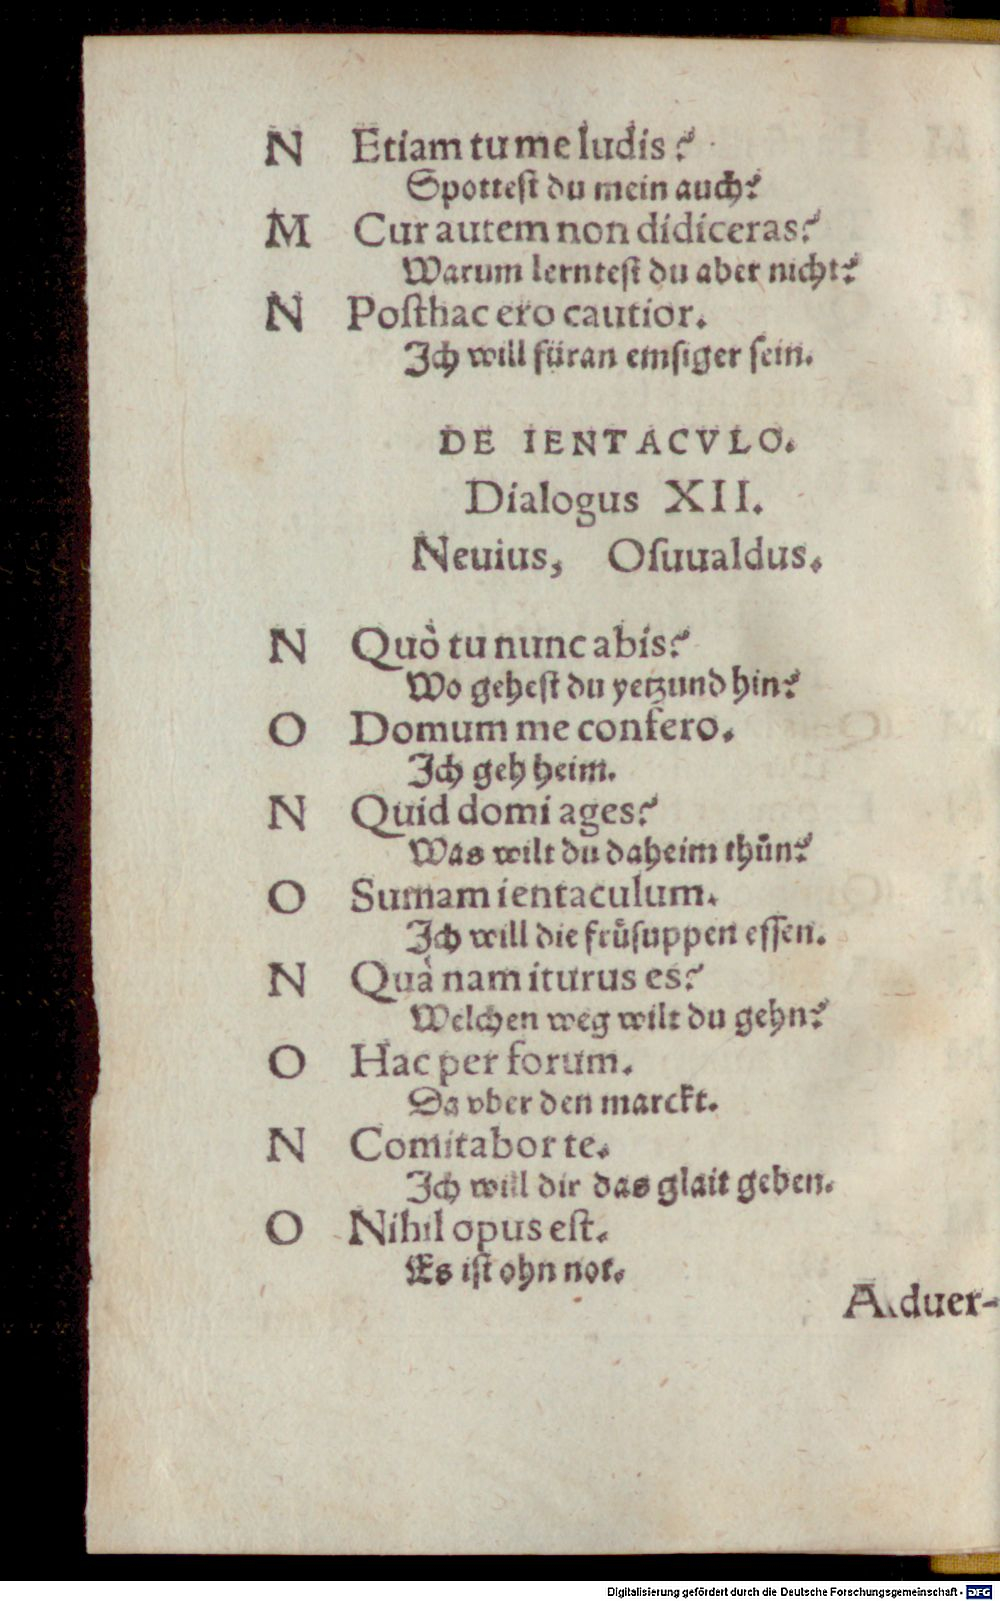 N Etiam tu me ludis?
Spottest du mein auch?
M Cur autem non didiceras?
Warum lerntest du aber nicht?
N Posthac ero cautior.
Ich will füran emsiger sein.
DE IENTACVLO.
Dialogus XII.
Neuius, Osuualdus.
N Quò tu nunc abis?
Wo gehest du yetzund hin?
O Domum me confero.
Ich geh heim.
N Quid domi ages?
Was wilt du daheim thůn?
O Sumam ientaculum.
Ich will die frůsuppen essen.
N Quà nam iturus es?
Welchen weg wilt du gehn?
O Hac per forum.
Da vber den marckt.
N Comitabor te.
Ich will dir das glait geben.
O Nihil opus est.
Es ist ohn not.
Aduer-
Digitalisierung gefördert durch die Deutsche Forschungsgemeinschaft - DFG